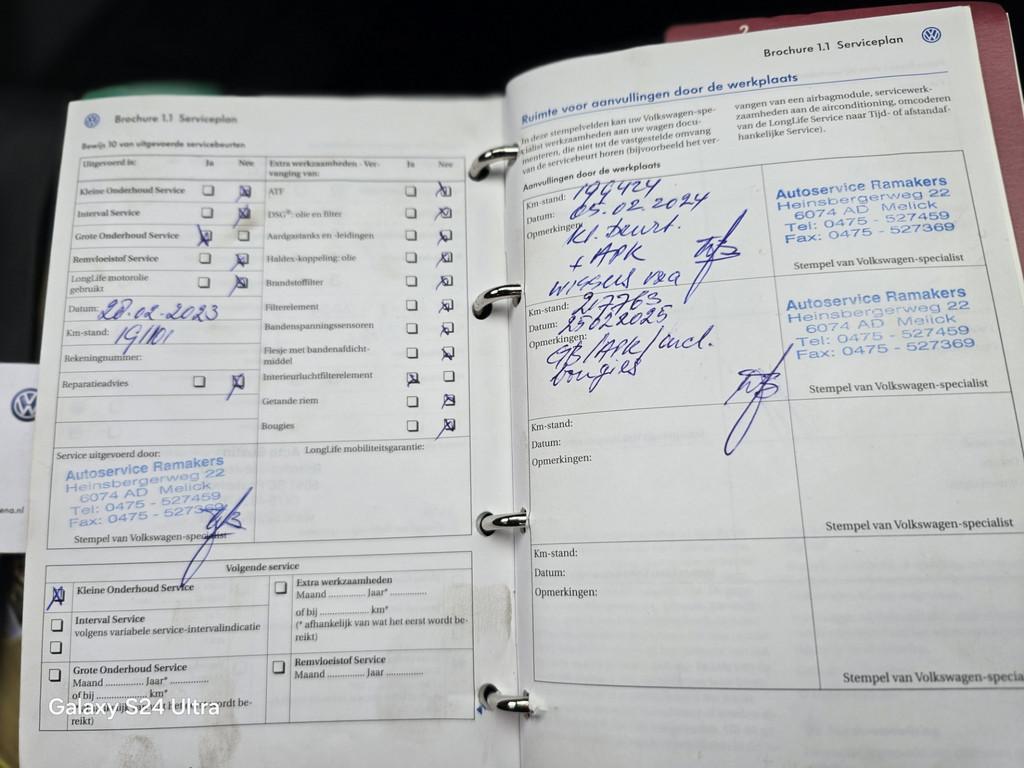 Brochure 1.1 Serviceplan
Bewijs 10 van uitgevoerde servicebeurten
Uitgevoerd is: Ja Nee
Kleine Onderhoud Service
Interval Service
Grote Onderhoud Service
Remvloeistof Service
LongLife motorolie
gebruikt
Datum: 28.02-2023
Km-stand: 191101
Rekeningnummer:
Reparatieadvies
Extra werkzaamheden - Ver-
vanging van: Ja Nee
ATF
DSG®: olie en filter
Aardgastanks en -leidingen
Haldex-koppeling: olie
Brandstoffilter
Filterelement
Bandenspanningssensoren
Flesje met bandenafdicht-
middel
Interieurluchtfilterelement
Getande riem
Bougies
Service uitgevoerd door:
Autoservice Ramakers
Heinsbergerweg 22
6074 AD Melick
Tel: 0475 - 527459
Fax: 0475 - 527369
Stempel van Volkswagen-specialist
LongLife mobiliteitsgarantie:
Volgende service
Kleine Onderhoud Service
Interval Service
volgens variabele service-intervalindicatie
Grote Onderhoud Service
Maand .............. Jaar* ..............
of bij .................. km*
reikt)
Extra werkzaamheden
Maand .............. Jaar* ..............
of bij .................. km*
(* afhankelijk van wat het eerst wordt be-
reikt)
Remvloeistof Service
Maand .............. Jaar ..............
Galaxy S24 Ultra
ena.nl
2
Brochure 1.1 Serviceplan
Ruimte voor aanvullingen door de werkplaats
In deze stempelvelden kan uw Volkswagen-spe-
cialist werkzaamheden aan uw wagen docu-
menteren, die niet tot de vastgestelde omvang
van de servicebeurt horen (bijvoorbeeld het ver-
vangen van een airbagmodule, servicewerk-
zaamheden aan de airconditioning, omcoderen
van de LongLife Service naar Tijd- of afstandaf-
hankelijke Service).
Aanvullingen door de werkplaats
Km-stand: 199424
Datum: 05.02.2024
Opmerkingen:
Kl. beurt.
+ APK
wissers voor
Autoservice Ramakers
Heinsbergerweg 22
6074 AD Melick
Tel: 0475 - 527459
Fax: 0475 - 527369
Stempel van Volkswagen-specialist
Km-stand: 217763
Datum: 25022025
Opmerkingen:
GB/APK/incl.
bougies
Autoservice Ramakers
Heinsbergerweg 22
6074 AD Melick
Tel: 0475 - 527459
Fax: 0475 - 527369
Stempel van Volkswagen-specialist
Km-stand:
Datum:
Opmerkingen:
Stempel van Volkswagen-specialist
Km-stand:
Datum:
Opmerkingen:
Stempel van Volkswagen-specia